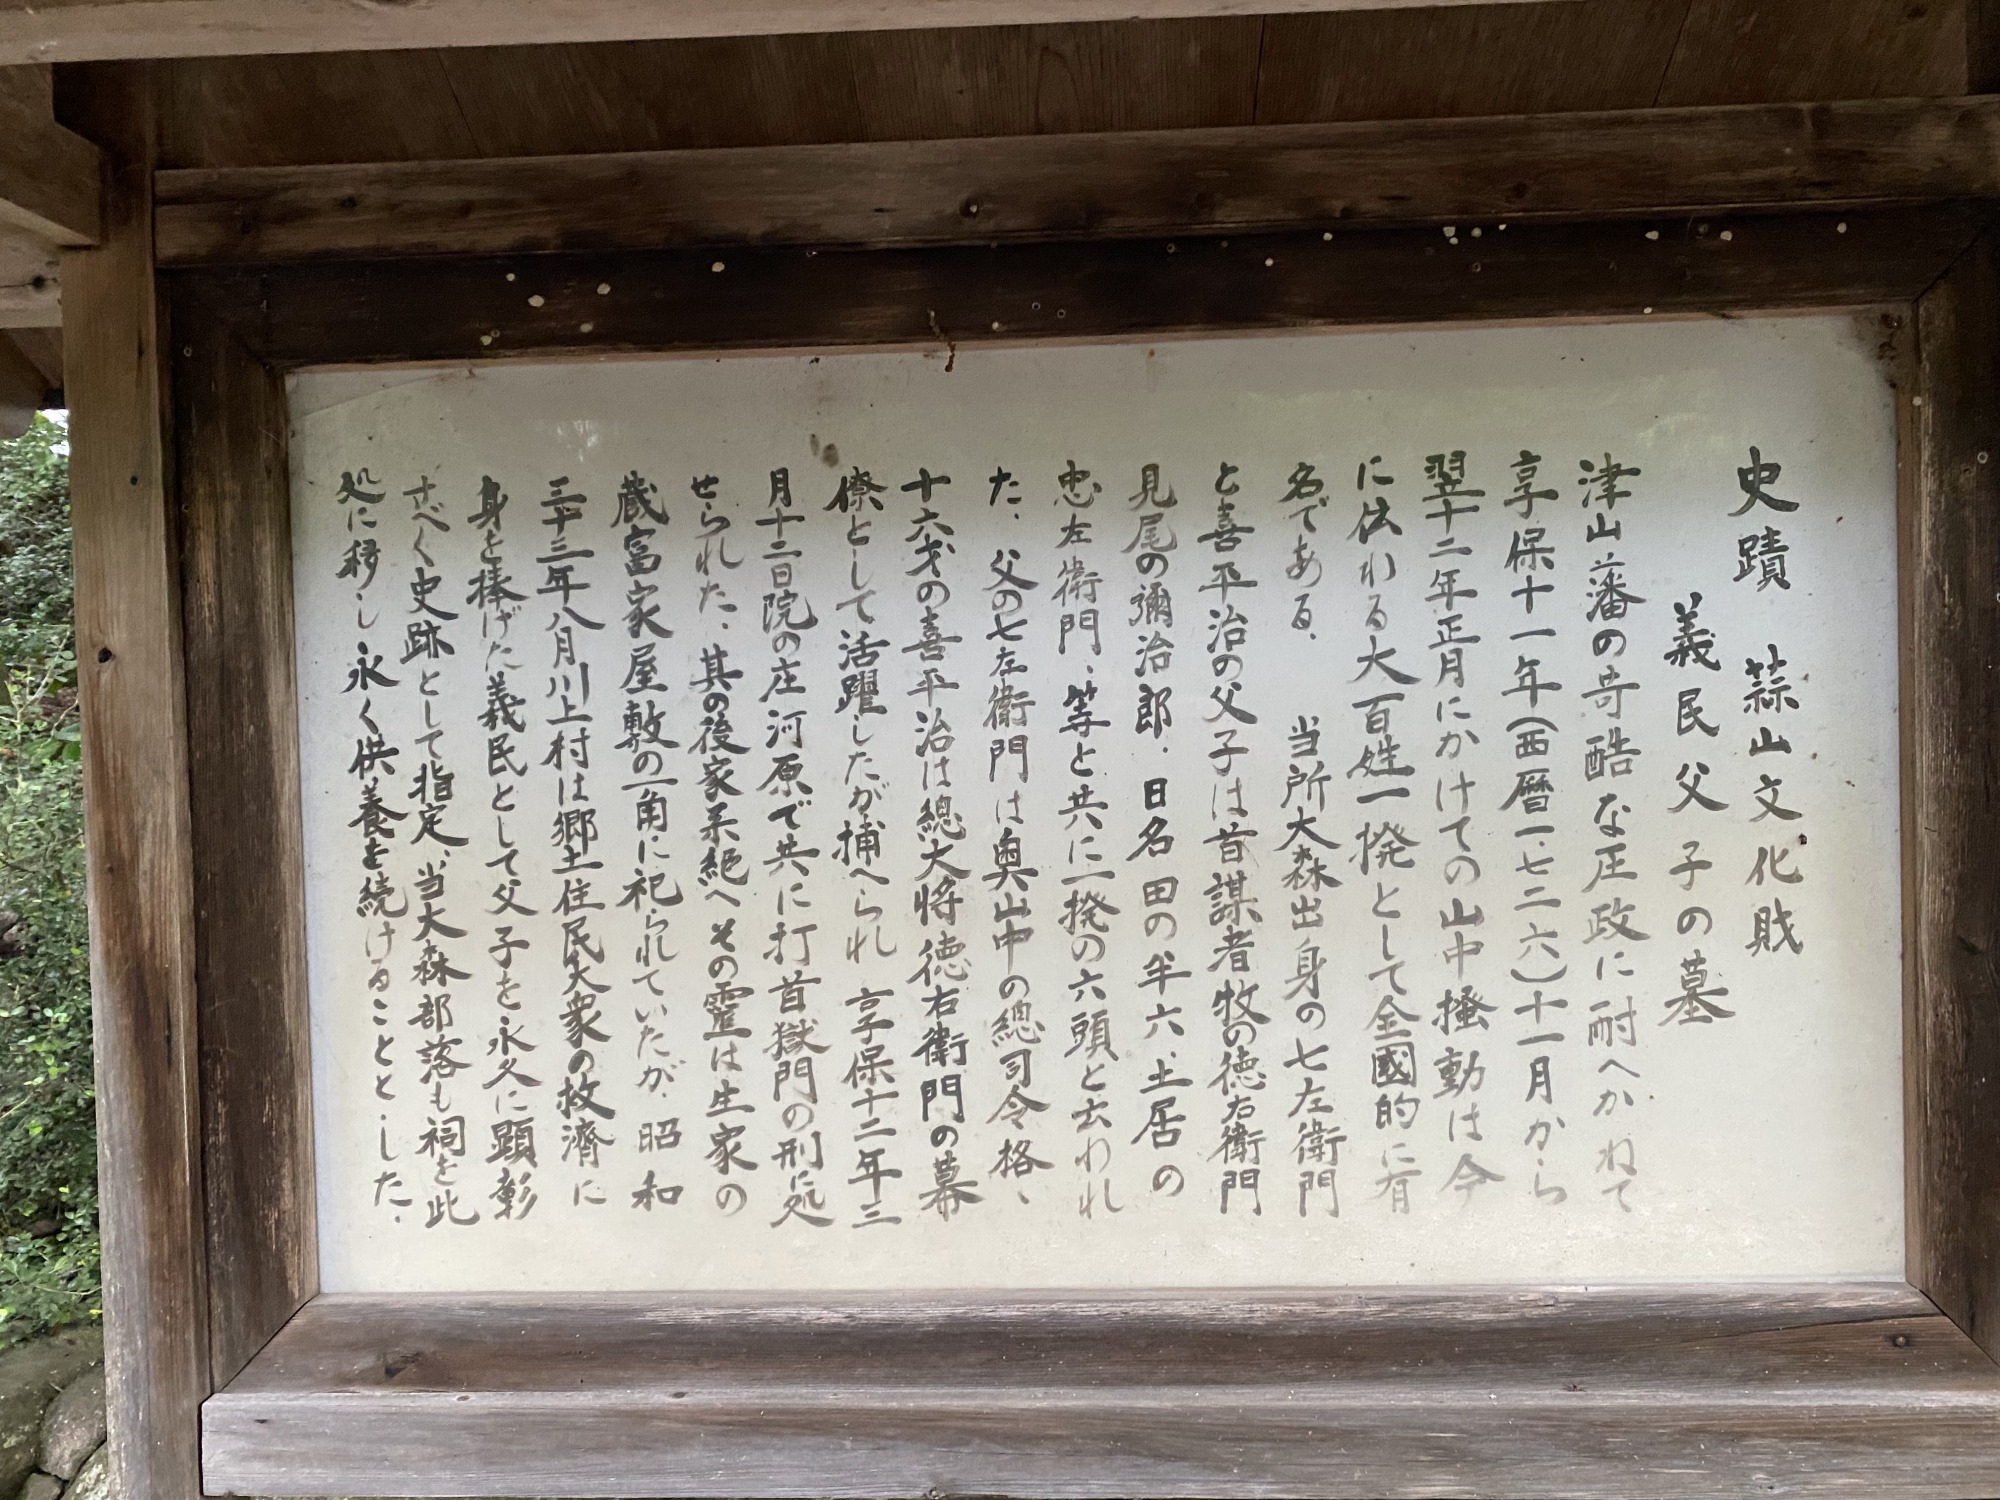 史蹟　蒜山文化財
義民父子の墓
津山藩の苛酷な圧政に耐へかねて
享保十一年(西暦一七二六)十一月から
翌十二年正月にかけての山中騒動は今
に伝わる大百姓一揆として全國的に有
名である、　当所大森出身の七左衛門
と喜平治の父子は首謀者牧の徳右衛門
見尾の彌治郎、日名田の半六、土居の
忠左衛門、等と共に一揆の六頭と云われ
た、父の七左衛門は奥山中の總司令格、
十六才の喜平治は總大将徳右衛門の幕
僚として活躍したが捕へられ　享保十二年三
月十二日院の庄河原で共に打首獄門の刑に処
せられた、其の後家系絶へその霊は生家の
蔵富家屋敷の一角に祀られていたが、昭和
三十三年八月川上村は郷土住民大衆の救濟に
身を捧げた義民として父子を永久に顕彰
すべく史跡として指定、当大森部落も祠を此
処に移し永く供養を続けることとした、